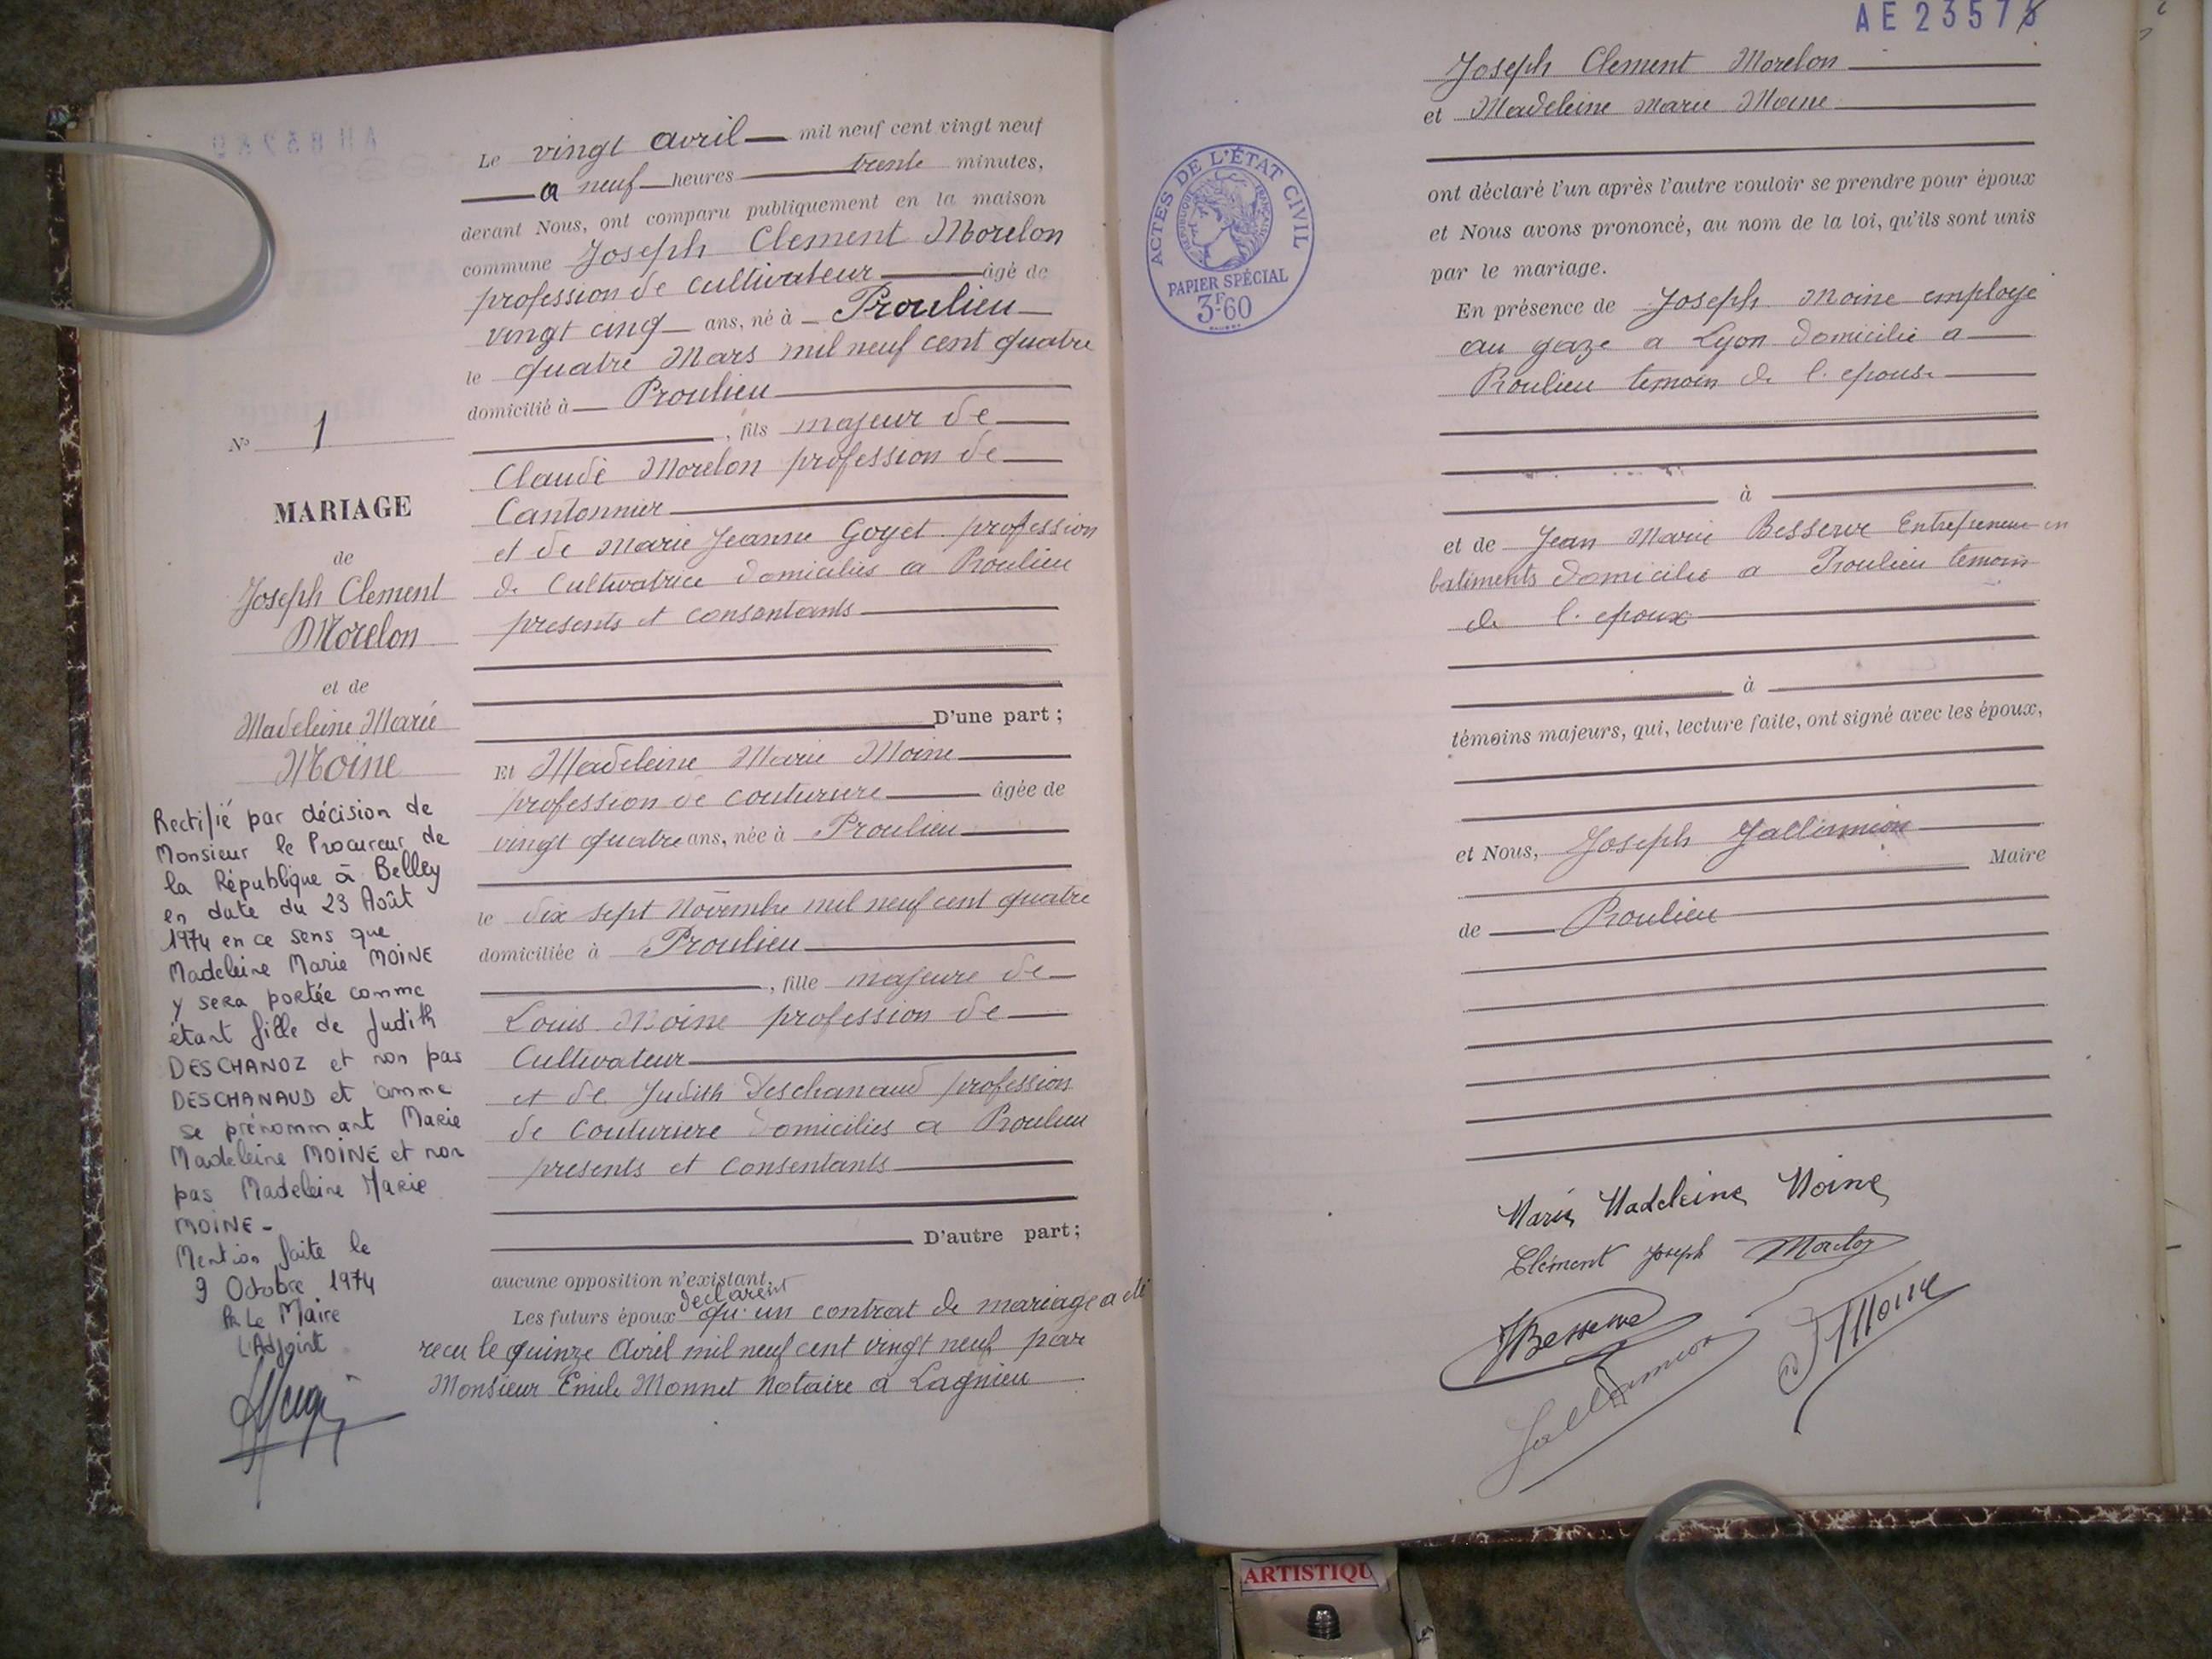 N° 1
MARIAGE
de
Joseph Clement
Morelon
et de
Madeleine Marie
Moine
Rectifié par décision de
Monsieur le Procureur de
la République à Belley
en date du 23 Août
1974 en ce sens que
Madeleine Marie MOINE
y sera portée comme
étant fille de Judith
DESCHANOZ et non pas
DESCHANAUD et comme
se prénommant Marie
Madeleine MOINE et non
pas Madeleine Marie
MOINE -
Mention faite le
9 Octobre 1974
Le Maire
L'Adjoint
Le vingt avril mil neuf cent vingt neuf
a neuf heures trente minutes,
devant Nous, ont comparu publiquement en la maison
commune Joseph Clement Morelon
profession de cultivateur âgé de
vingt cinq ans, né à Proulieu
le quatre Mars mil neuf cent quatre
domicilié à Proulieu
, fils majeur de
Claude Morelon profession de
Cantonnier
et de Marie Jeanne Goyet profession
de Cultivatrice domiciliés a Proulieu
presents et consentants
D'une part ;
Et Madeleine Marie Moine
profession de couturiere âgée de
vingt quatre ans, née à Proulieu
le dix sept Novembre mil neuf cent quatre
domiciliée à Proulieu
, fille majeure de
Louis Moine profession de
Cultivateur
et de Judith Deschanaud profession
de Couturiere domicilies a Proulieu
presents et consentants
D'autre part ;
aucune opposition n'existant.
Les futurs époux declarent qu'un contrat de mariage a été
recu le quinze Avril mil neuf cent vingt neuf par
Monsieur Emile Monnet Notaire a Lagnieu
AE 2357
ACTES DE L'ÉTAT CIVIL
RÉPUBLIQUE FRANÇAISE
PAPIER SPÉCIAL
3F60
Joseph Clement Morelon
et Madeleine Marie Moine
ont déclaré l'un après l'autre vouloir se prendre pour époux
et Nous avons prononcé, au nom de la loi, qu'ils sont unis
par le mariage.
En présence de Joseph Moine employe
au gaze a Lyon domicilié a
Proulieu temoin de l'epouse
à
et de Jean Marie Besserve Entrepreneur en
batiments domicilie a Proulieu temoin
de l'epoux
à
témoins majeurs, qui, lecture faite, ont signé avec les époux,
et Nous, Joseph Jallamion
Maire
de Proulieu
Marie Madeleine Moine
Clément Joseph
JBesserve
J Moine
Jallamion
ARTISTIQU